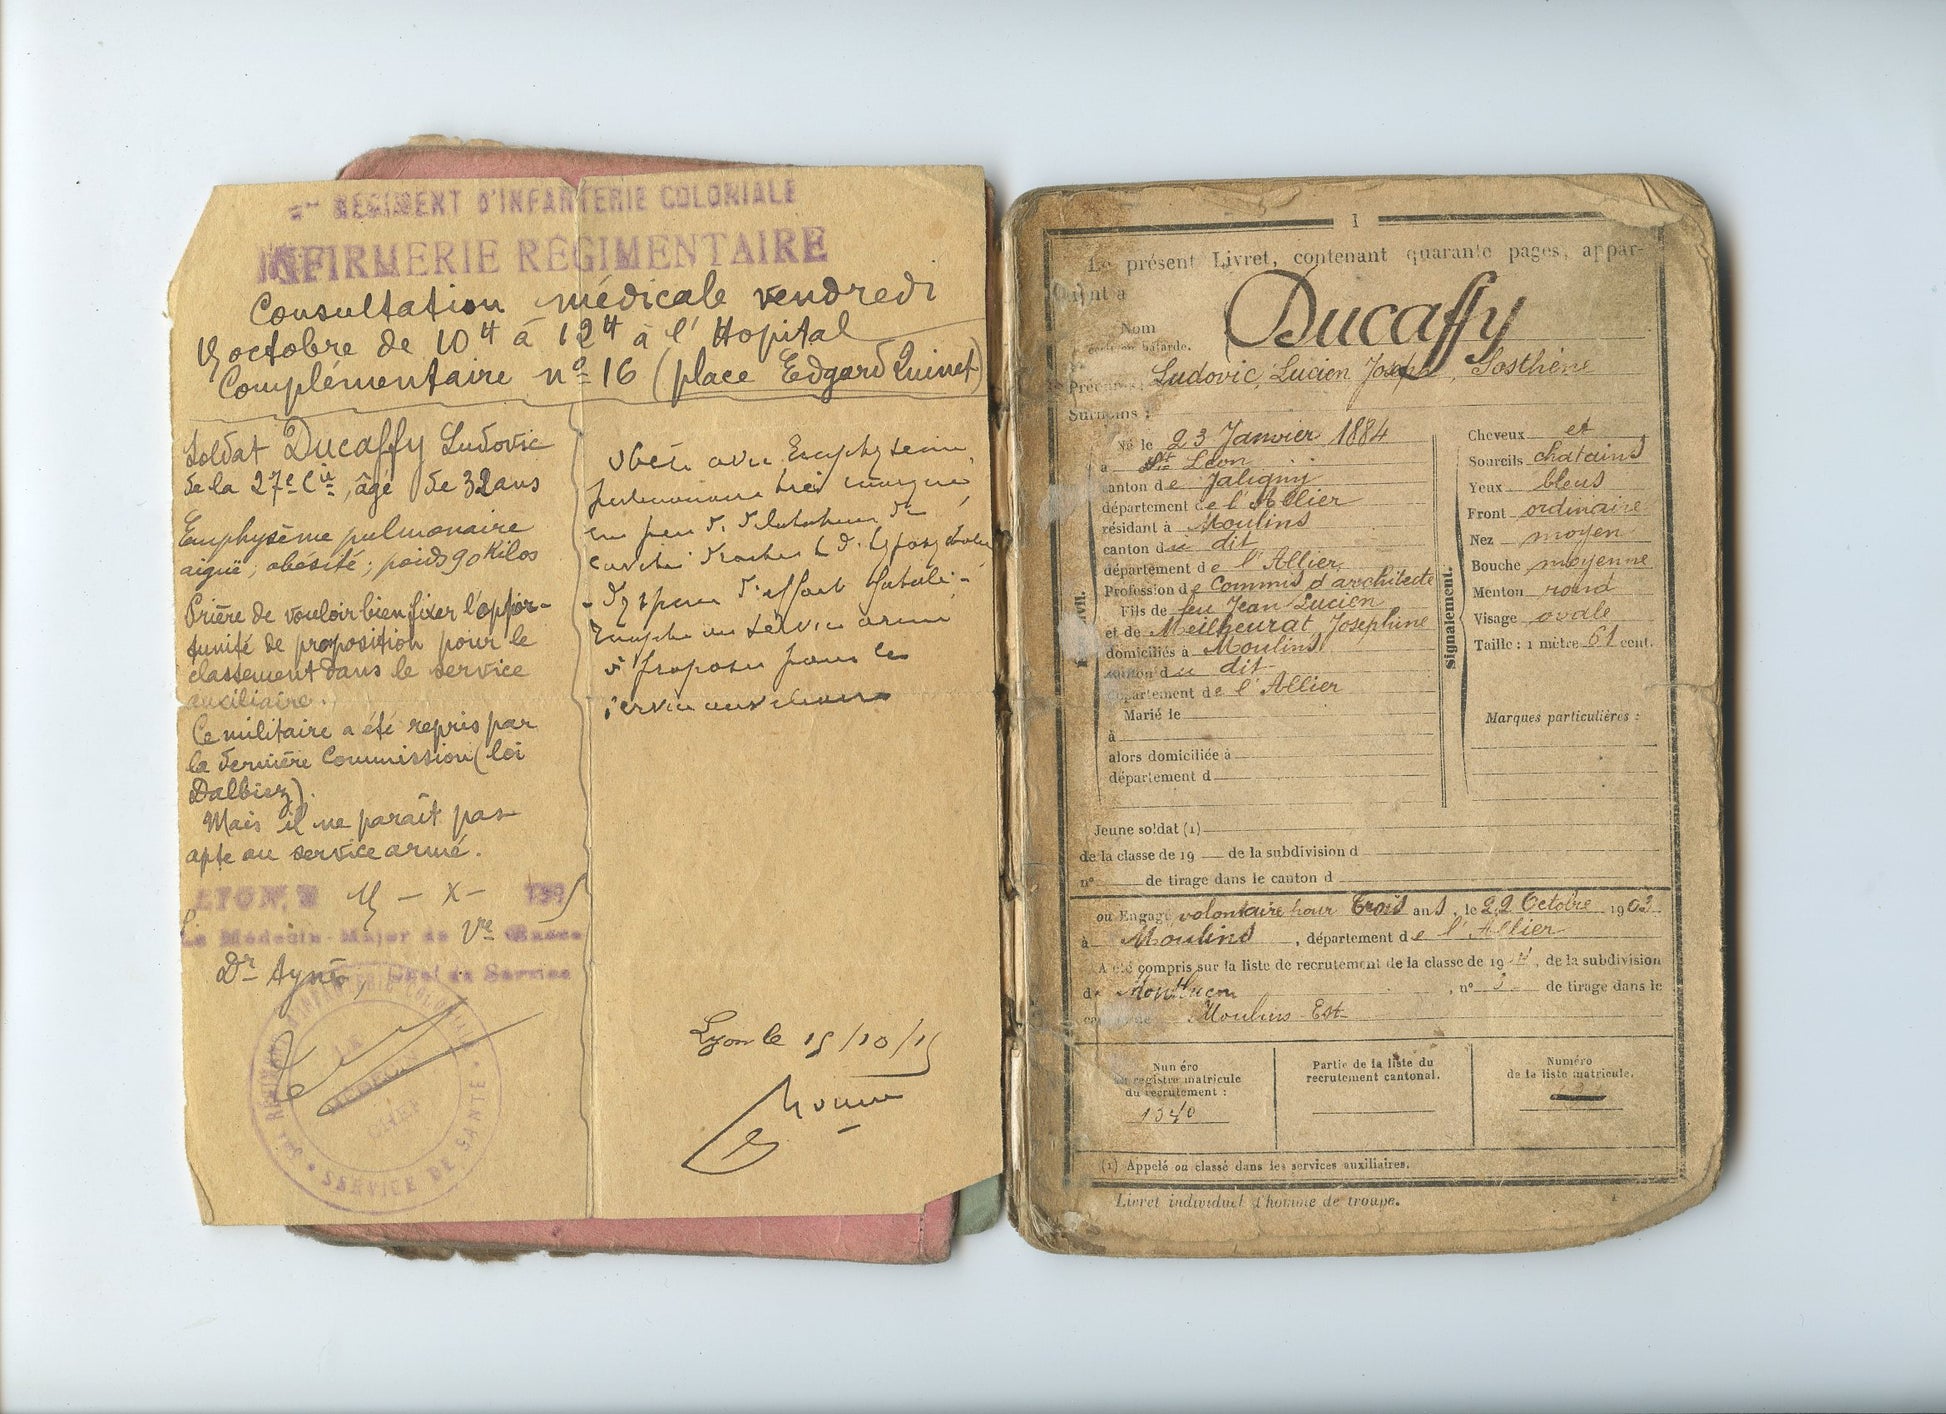 RÉGIMENT D'INFANTERIE COLONIALE
INFIRMERIE RÉGIMENTAIRE
Consultation médicale vendredi
15 octobre de 10H à 12H à l'Hopital
Complémentaire no 16 (place Edgard Quinet)
Soldat Ducaffy Ludovic
de la 27e Cie, âgé de 32 ans
Emphysème pulmonaire
aiguë; obésité; poids 90 Kilos
Prière de vouloir bien fixer l'oppor-
tunité de proposition pour le
classement dans le service
auxiliaire.
Ce militaire a été repris par
la dernière Commission (loi
Dalbiez).
Mais il ne paraît pas
apte au service armé.
LYON, le 15 - X - 1915
Le Médecin-Major de Vre Classe
Dr Ayné, Chef de Service
RÉGIMENT D'INFANTERIE COLONIALE
SERVICE DE SANTÉ
LE
MÉDECIN
CHEF
Obésité avec Emphysème
pulmonaire très marqué
un peu de dilatation du
- Dyspnée d'effort
Inapte au service armé
à proposer pour le
service auxiliaire
Lyon le 15/10/15
1
Le présent Livret, contenant quarante pages, appar-
tient à
Nom
Ducaffy
écrit en bâtarde.
Prénoms: Ludovic, Lucien Joseph, Sosthène
Surnoms :
État civil.
Né le 23 Janvier 1884
à St Léon
canton de Jaligny
département de l'Allier
résidant à Moulins
canton du dit
département de l'Allier,
Profession de Commis d'architecte
Fils de feu Jean Lucien
et de Meilheurat Joséphine
domiciliés à Moulins
canton du dit
département de l'Allier
Marié le
à
alors domiciliée à
département d
Signalement.
Cheveux et
Sourcils chatains
Yeux bleus
Front ordinaire
Nez moyen
Bouche moyenne
Menton rond
Visage ovale
Taille : 1 mètre 61 cent.
Marques particulières :
Jeune soldat (1)
de la classe de 19 de la subdivision d
n° de tirage dans le canton d
ou Engagé volontaire pour trois ans, le 22 Octobre 1903
à Moulins, département de l'Allier
A été compris sur la liste de recrutement de la classe de 1904, de la subdivision
de Montluçon, n° 3 de tirage dans le
canton de Moulins-Est
Numéro
au registre matricule
du recrutement :
1340
Partie de la liste du
recrutement cantonal.
Numéro
de la liste matricule.
(1) Appelé ou classé dans les services auxiliaires.
Livret individuel d'homme de troupe.
1